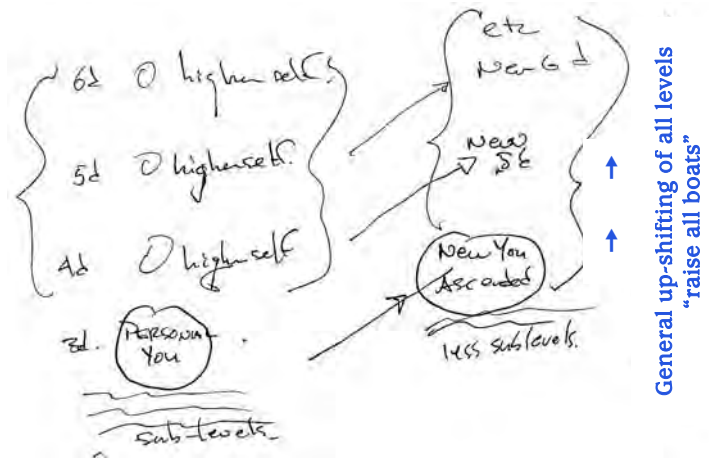 6d O higher self.
5d O higherself.
4d O higherself
3d. PERSONAL
YOU
sub-levels
etc
New 6 d
New
5d
New You
Ascended
less sublevels.
General up-shifting of all levels
“raise all boats”